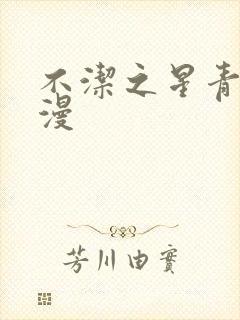 不潔之星青
漫
芳川由實